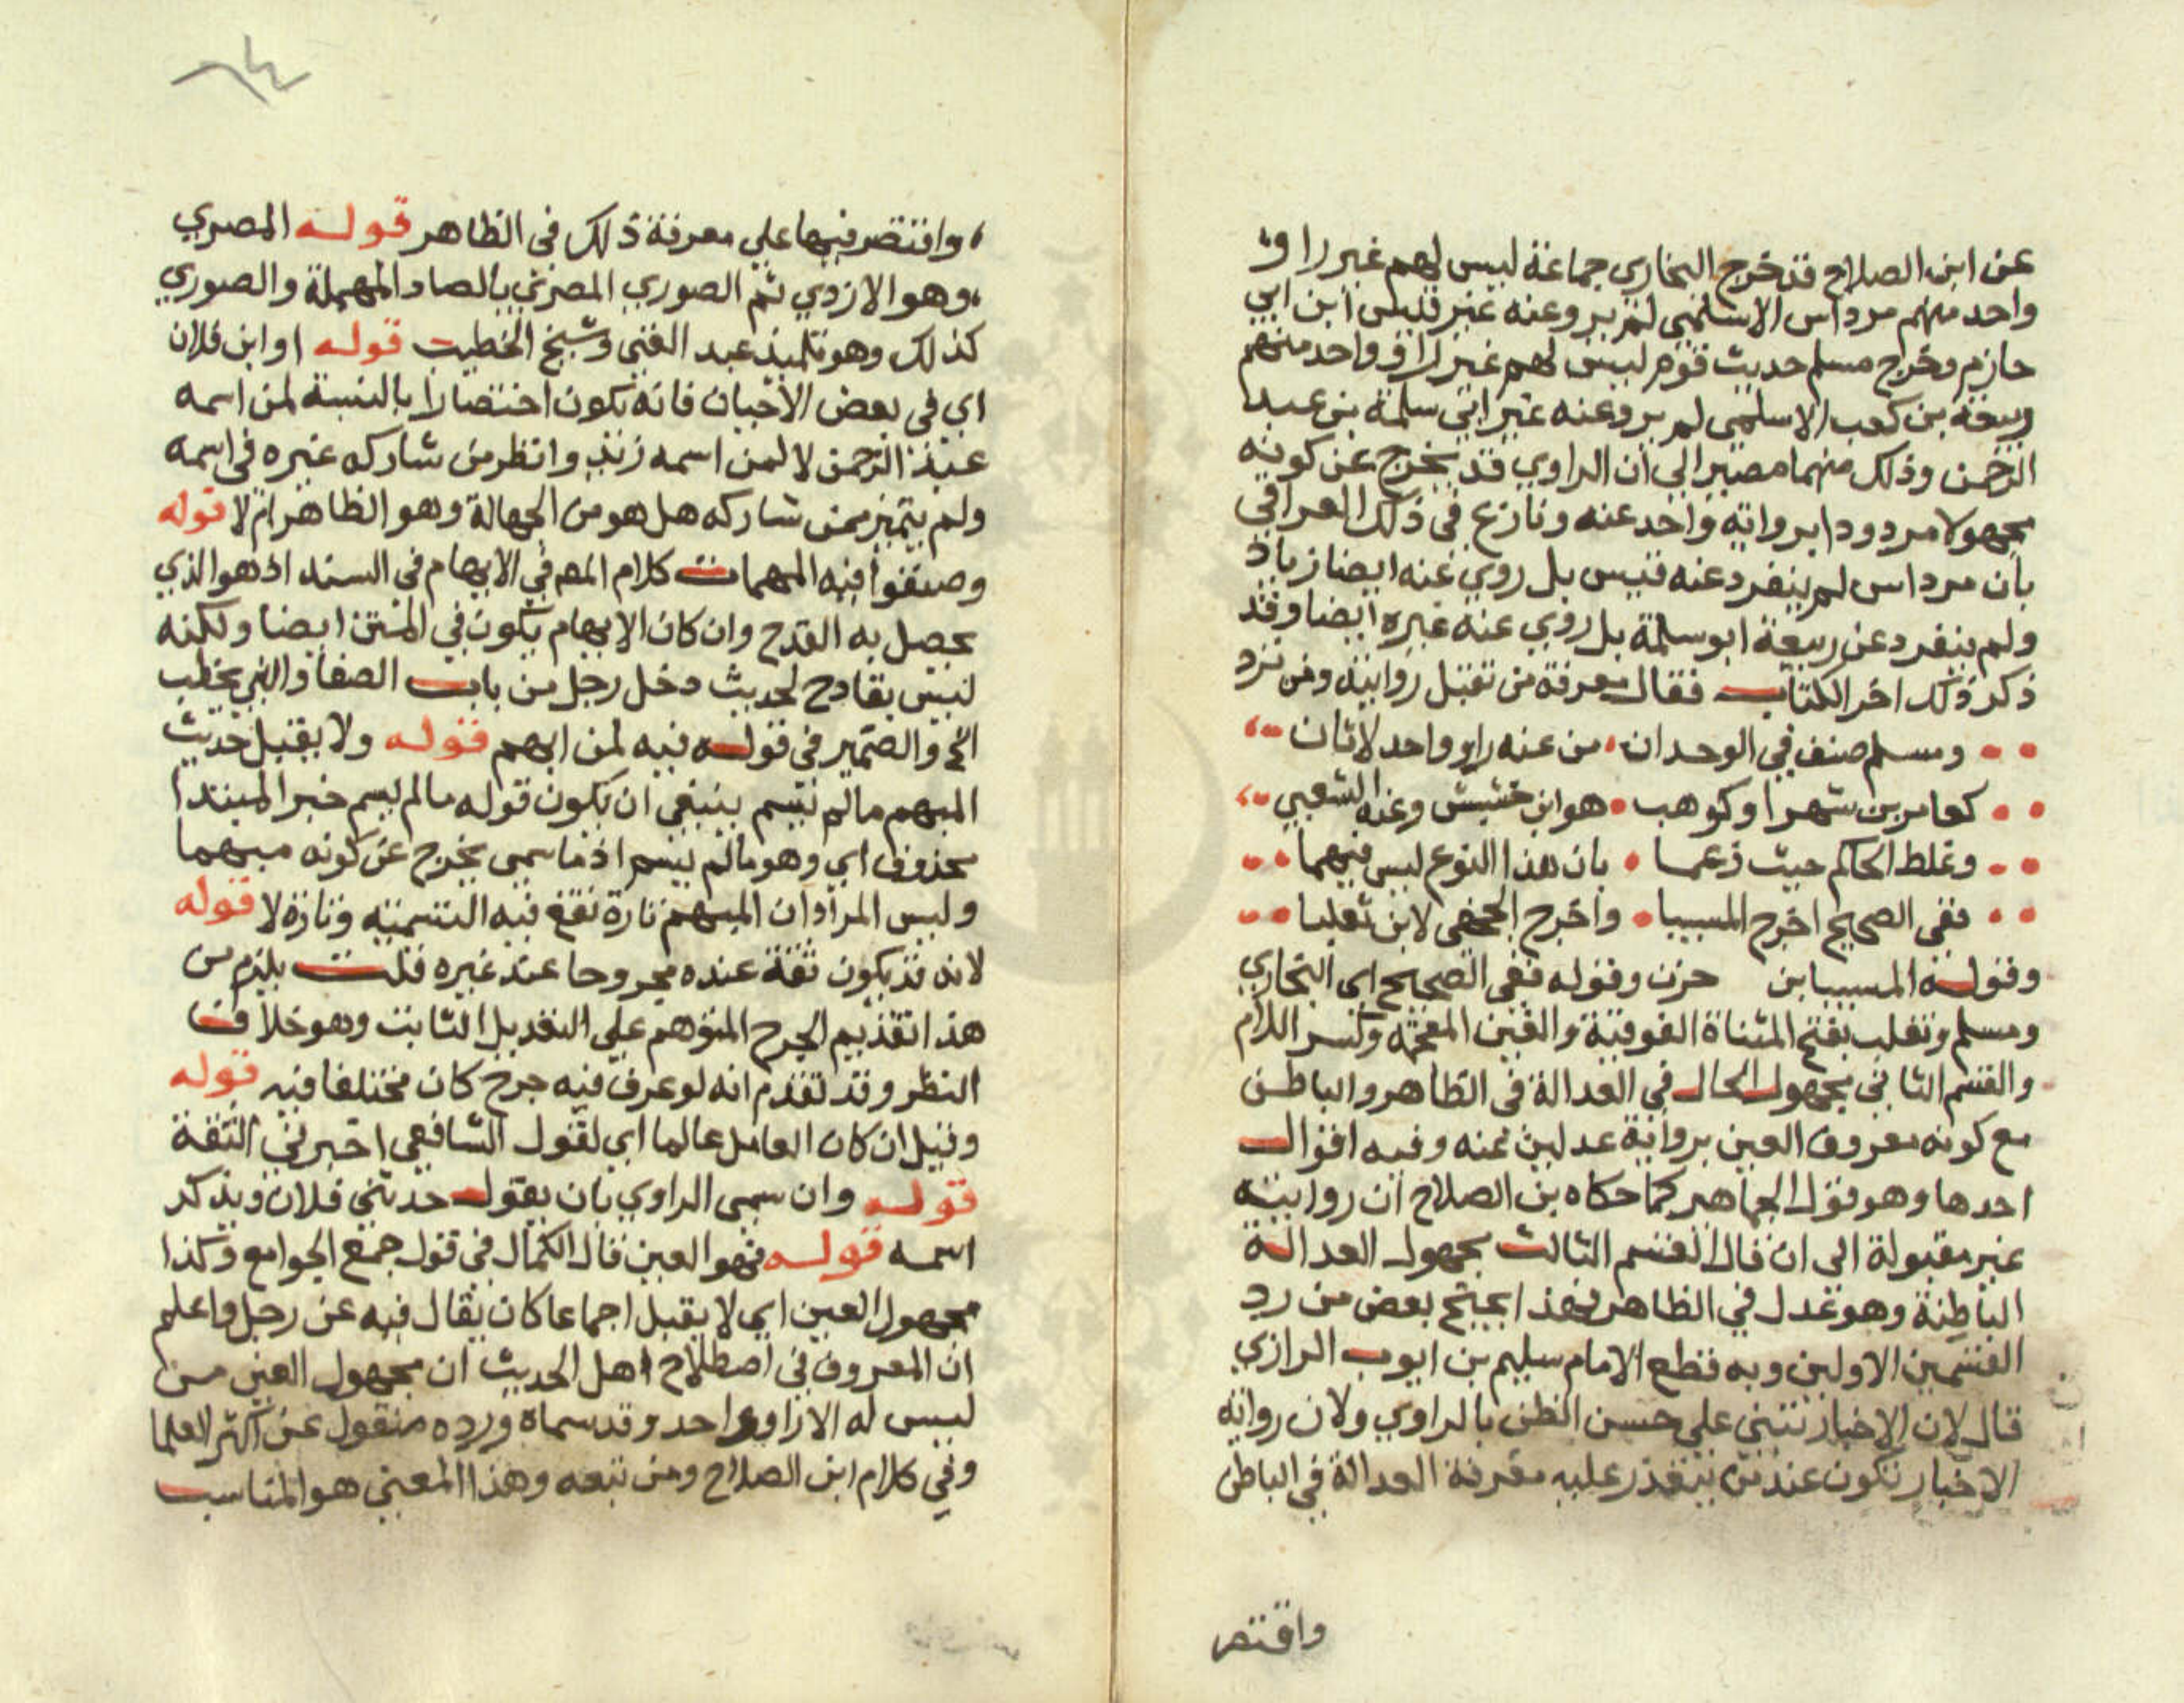 عن ابن الصلاح قد خرج البخاري جماعة ليس لهم غير راو
واحد منهم مرداس الاسلمي لم يرو عنه غير قيس ابن ابي
حازم وخرج مسلم حديث قوم ليس لهم غير راو واحد منهم
ربيعة بن كعب الاسلمي لم يرو عنه غير ابي سلمة بن عبد
الرحمن وذلك منهما مصير الي ان الراوي قد يخرج عن كونه
مجهولا مردودا برواية واحد عنه ونازع في ذلك العراقي
بان مرداس لم ينفرد عنه قيس بل روي عنه ايضا زياد
ولم ينفرد عن ربيعة ابو سلمة بل روي عنه غيره ايضا وقد
ذكر ذلك اخر الكتاب فقال معرفة من تقبل روايته ومن ترد
ومسلم صنف في الوحدان من عنه راو واحد لا ثان
كعامر بن شهر او كوهب هو ابن خنبش وعنه الشعبي
وغلط الحاكم حيث زعما بان هذا النوع ليس فيهما
ففي الصحيح اخرج المسيبا واخرج الجعفي لابن تغلبا
وقوله المسيبا بن حزن وقوله ففي الصحيح اي البخاري
ومسلم وتغلب بفتح المثناة الفوقية والغين المعجمة وكسر اللام
والقسم الثاني مجهول الحال في العدالة في الظاهر والباطن
مع كونه معروف العين برواية عدلين عنه وفيه اقوال
احدها وهو قول الجماهير كما حكاه بن الصلاح ان روايته
غير مقبولة الى ان قال القسم الثالث مجهول العدالة
الباطنة وهو عدل في الظاهر فهذا يحتج بعض من رد
القسمين الاولين وبه قطع الامام سليم بن ايوب الرازي
قال لان الاخبار تبني علي حسن الظن بالراوي ولان رواية
الاخبار تكون عند من يتعذر عليه معرفة العدالة في الباطن
واقتصر
واقتصر فيها علي معرفة ذلك في الظاهر قوله المصري
وهو الازدي ثم الصوري المصري بالصاد المهملة والصوري
كذلك وهو تلميذ عبد الغني وشيخ الخطيب قوله او ابن فلان
اي في بعض الاحيان فانه يكون اختصارا بالنسبة لمن اسمه
عبد الرحمن لا لمن اسمه زيد وانظر من شاركه غيره في اسمه
ولم يتميز ممن شاركه هل هو من الجهالة وهو الظاهر ام لا قوله
وصنفوا فيه المبهمات كلام المص في الابهام في السند اذ هو الذي
يحصل به القدح وان كان الابهام يكون في المتن ايضا ولكنه
ليس بقادح لحديث دخل رجل من باب الصفا والنبي يخطب
الخ والضمير في قوله فيه لمن ابهم قوله ولا يقبل حديث
المبهم ما لم يسم ينبغي ان يكون قوله ما لم يسم خبر المبتدا
محذوف اي وهو ما لم يسم اذ ما سمي يخرج عن كونه مبهما
وليس المراد ان المبهم تارة تقع فيه التسمية وتارة لا قوله
لانه قد يكون ثقة عنده مجروحا عند غيره قلت يلزم من
هذا تقديم الجرح المتوهم علي التعديل الثابت وهو خلاف
النظر وقد تقدم انه لو عرف فيه جرح كان مختلفا فيه قوله
وقيل ان كان العامل عالما اي لقول الشافعي اخبرني الثقة
قوله وان سمي الراوي بان يقول حدثني فلان ويذكر
اسمه قوله فهو العين قال الكمال في قول جمع الجوامع وكذا
مجهول العين اي لا يقبل اجماعا كان يقال فيه عن رجل واعلم
ان المعروف في اصطلاح اهل الحديث ان مجهول العين من
ليس له الا راو واحد وقد سماه ورده منقول عن اكثر العلما
وفي كلام ابن الصلاح ومن تبعه وهذا المعني هو المناسب